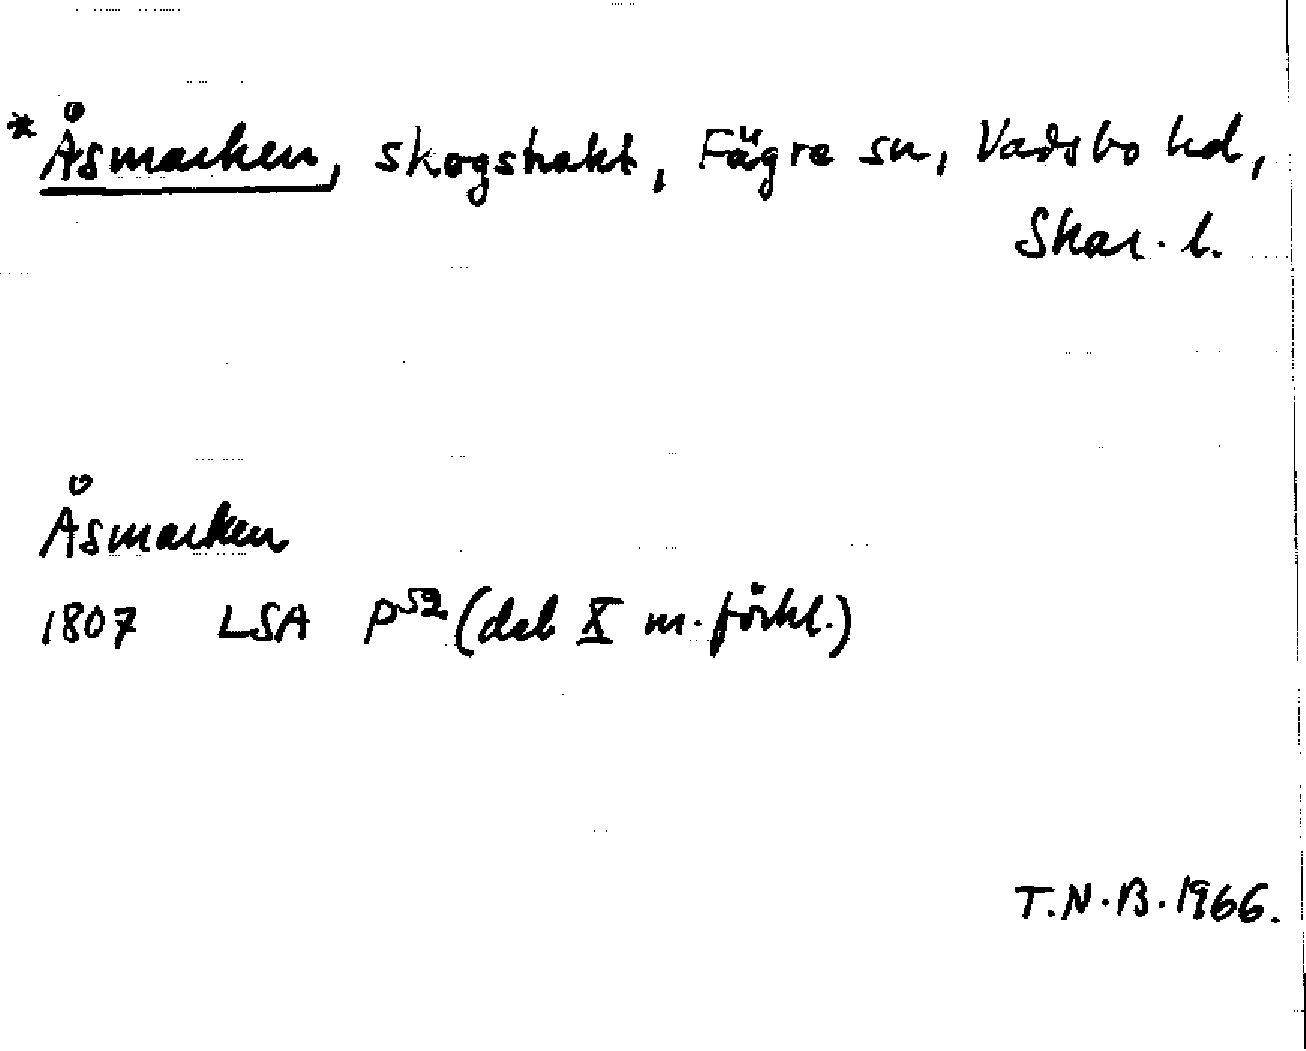 *Åsmarken, skogstrakt, Fägre sn, Vadsbo hd,
Skar. l.
Åsmarken
1807 LSA P52 (del X m. förkl.)
T.N.B. 1966.